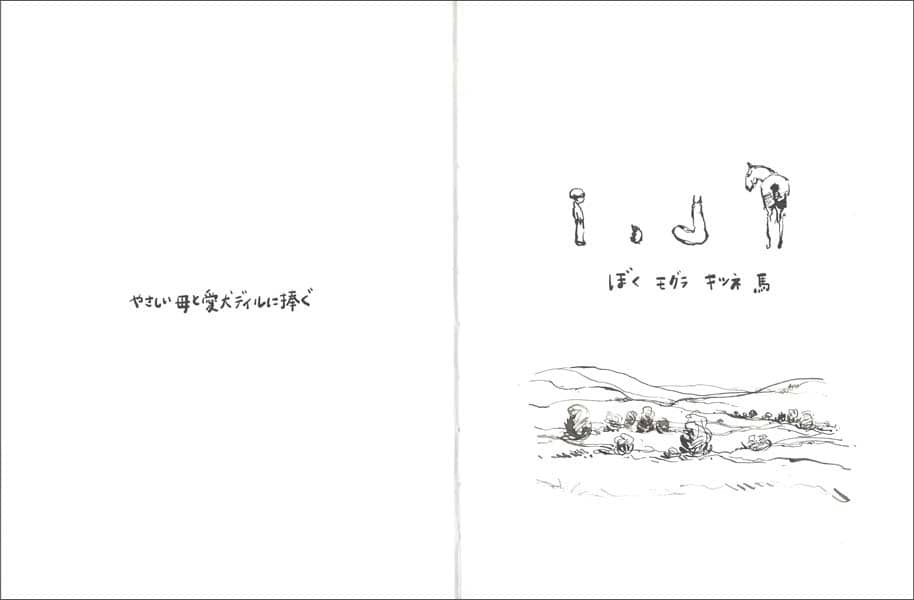 やさしい母と愛犬ディルに捧ぐ
ぼく モグラ キツネ 馬